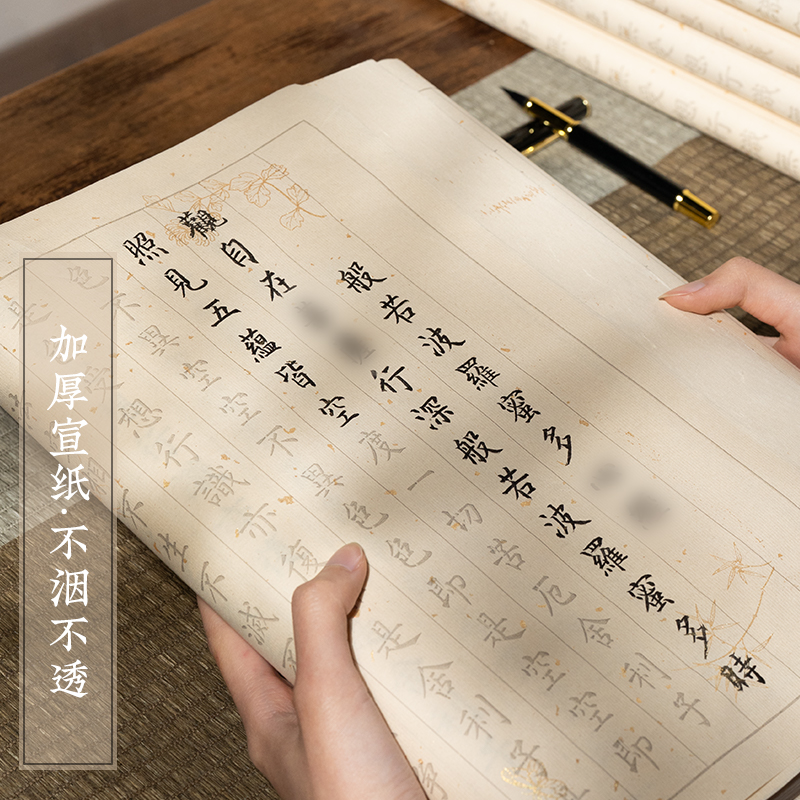 加厚宣纸·不洇不透
般若波羅蜜多
觀自在
行深般若波羅蜜多時
照見五蘊皆空度一切苦厄舍利子
色不異空空不異色色即是空空即
是
受想行識亦復
是舍利子
不生不滅